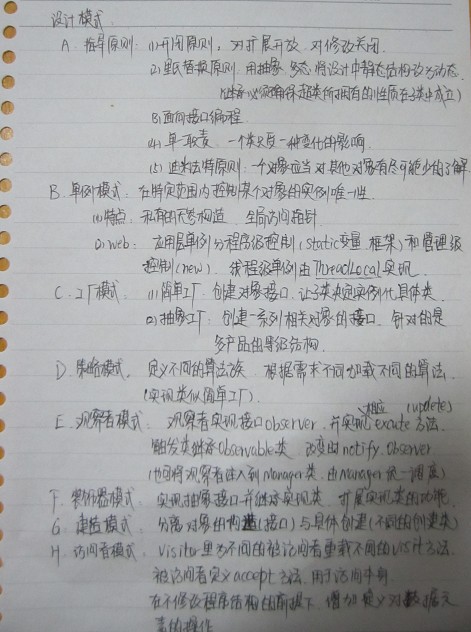 设计模式
A. 指导原则: (1)开闭原则: 对扩展开放, 对修改关闭.
(2)里氏替换原则: 用抽象、多态将设计中静态结构改为动态.
(继承必须确保超类所拥有的性质在子类中成立)
(3)面向接口编程.
(4)单一职责. 一个类只受一种变化的影响.
(5)迪米法特原则: 一个对象应当对其他对象有尽可能少的了解
B. 单例模式: 在特定范围内控制某个对象的实例唯一性.
(1)特点: 私有的构造 全局访问指针
(2)web: 应用层单例分程序级控制(static变量, 框架)和管理级
控制(new) 线程级单例由ThreadLocal实现.
C. 工厂模式: (1)简单工厂: 创建对象接口, 让子类决定实例化具体类.
(2)抽象工厂: 创建一系列相关对象的接口. 针对的是
多产品的等级结构.
D. 策略模式. 定义不同的算法族. 根据需求不同加载不同的算法.
(实现类似简单工厂)
E. 观察者模式: 观察者实现接口observer. 并实现相应excute方法. (update)
触发类继承Observable类 改变由notify. Observer
(也可将观察者注入到Manager类, 由Manager统一调度)
F. 装饰器模式: 实现抽象接口并继承实现类. 扩展实现类的功能.
G. 建造模式: 分离对象的构造(接口)与具体创建(不同的创建类)
H. 访问者模式: Visitor里为不同的被访问者重载不同的visit方法.
被访问者定义accept方法. 用于访问本身.
在不修改程序结构的前提下, 增加定义对数据元
素的操作